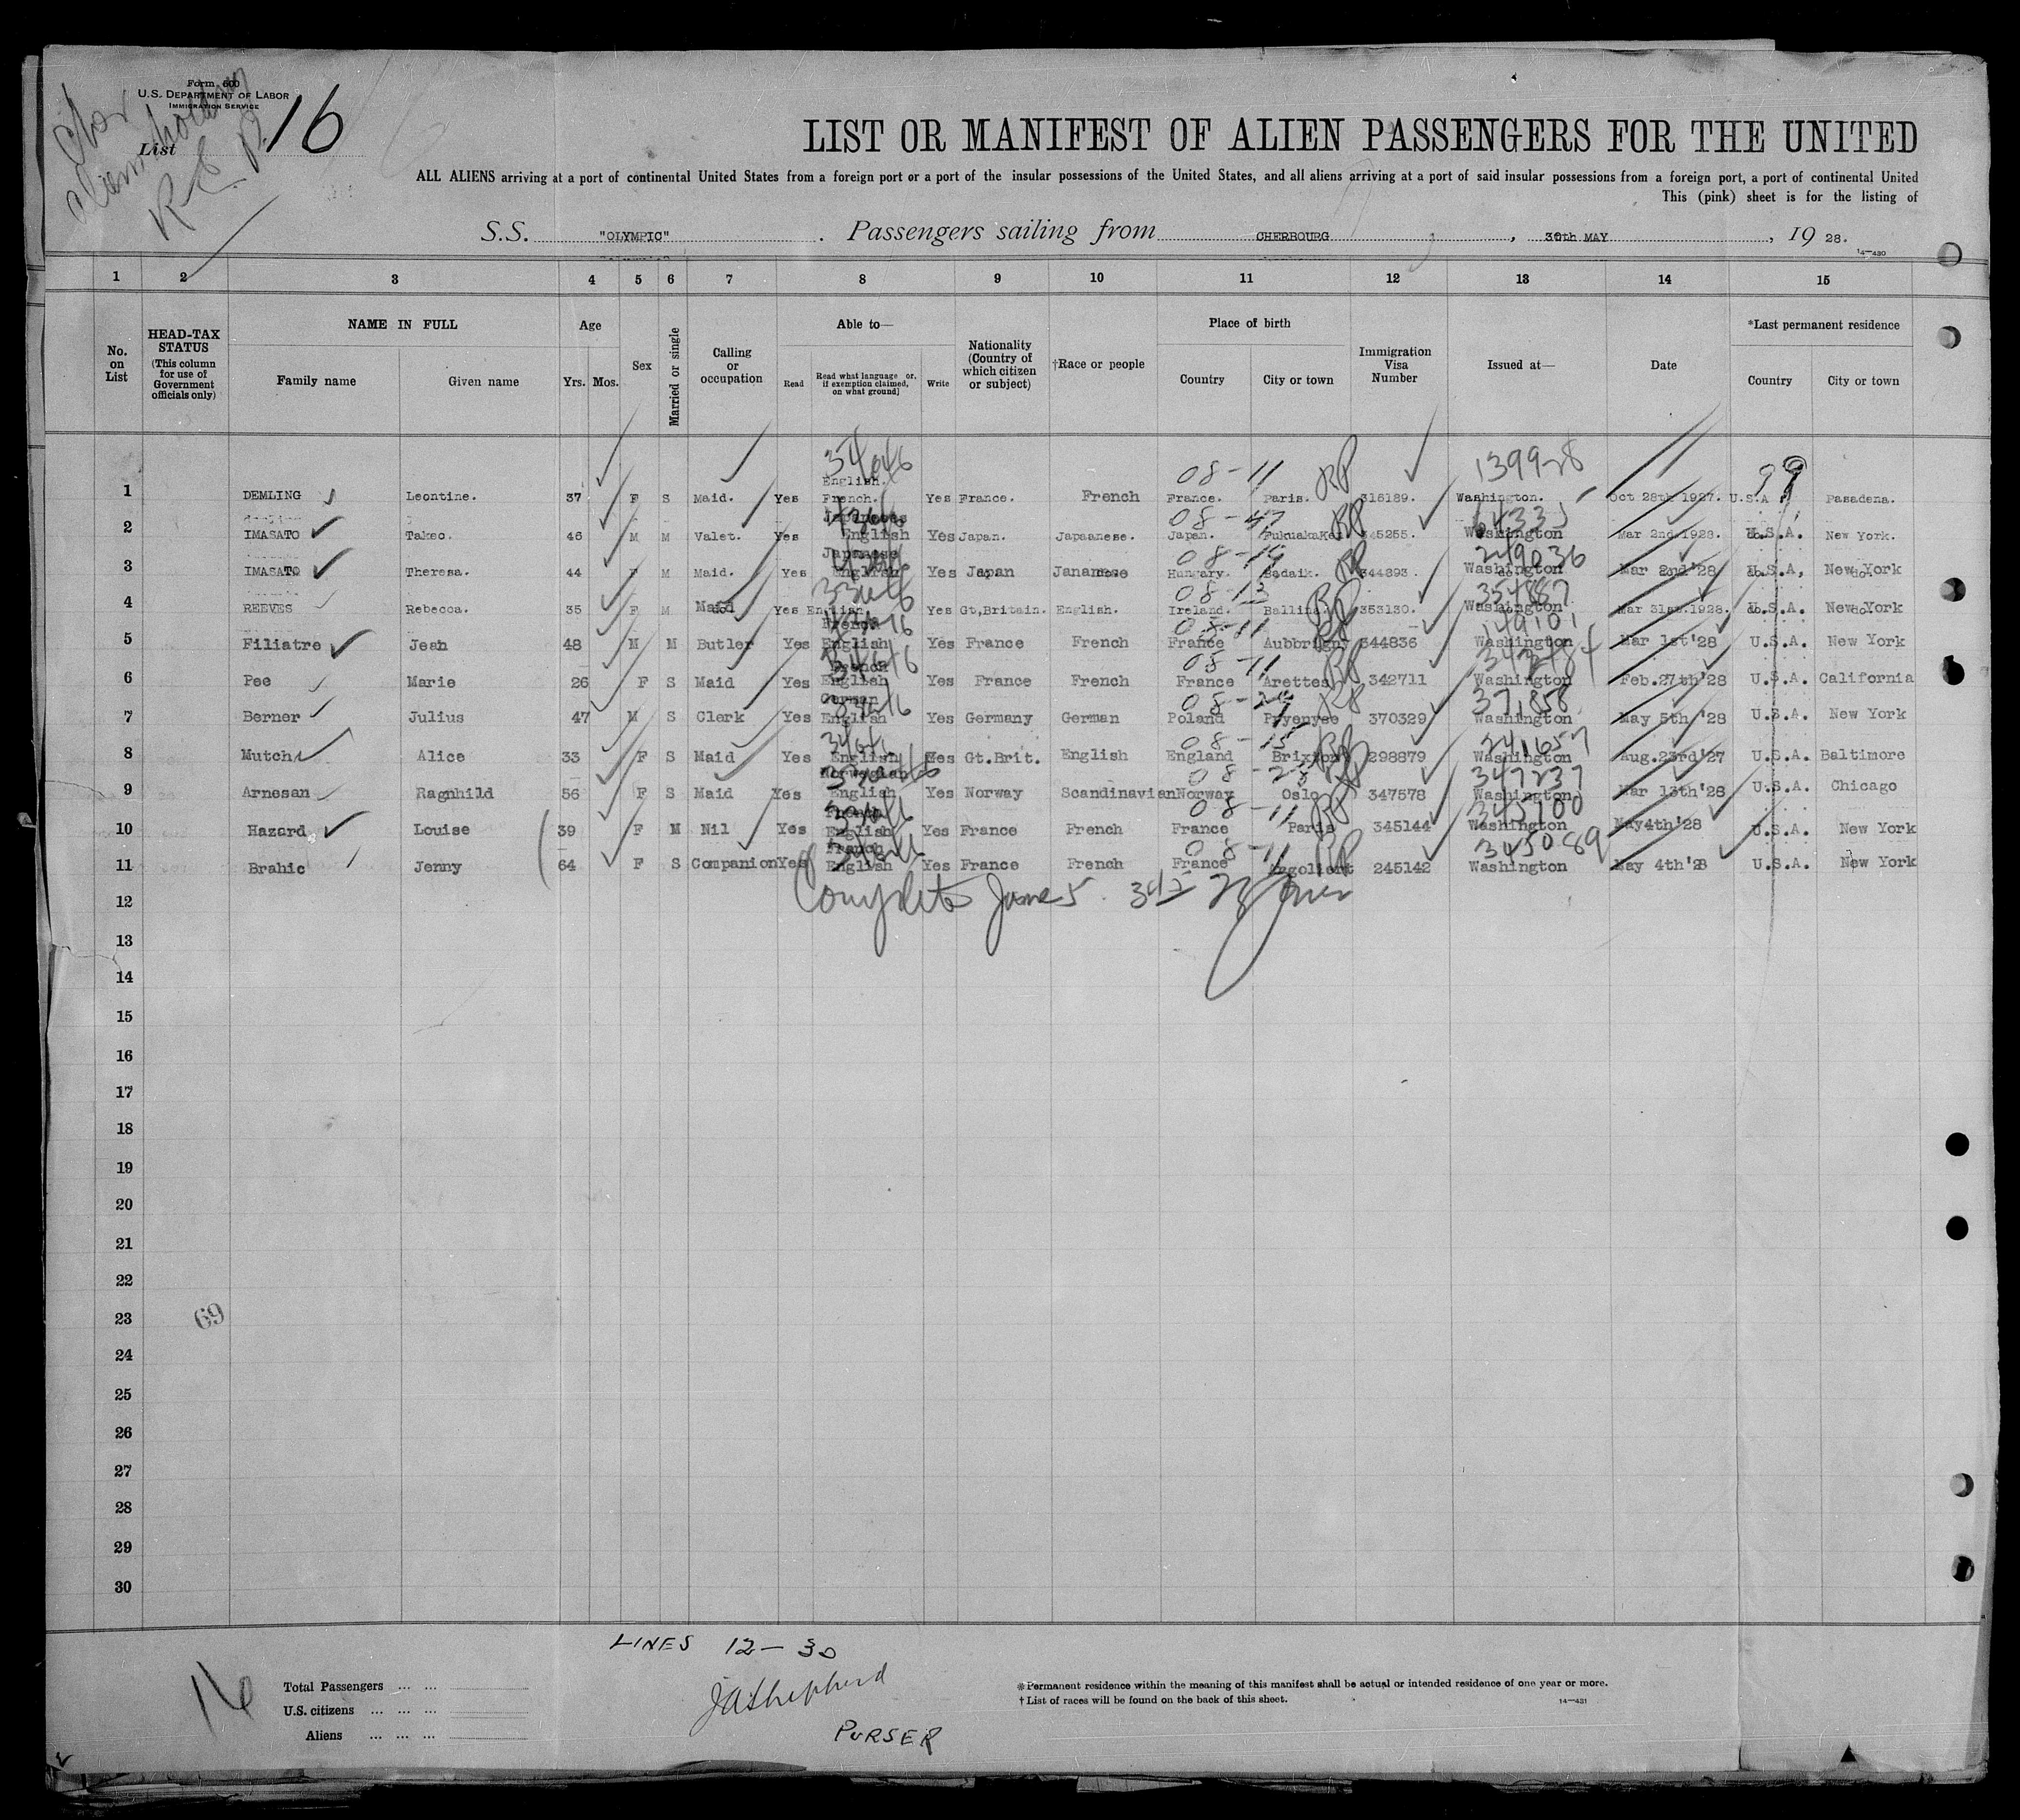 Form 500
U.S. DEPARTMENT OF LABOR
IMMIGRATION SERVICE
List 16
LIST OR MANIFEST OF ALIEN PASSENGERS FOR THE UNITED
ALL ALIENS arriving at a port of continental United States from a foreign port or a port of the insular possessions of the United States, and all aliens arriving at a port of said insular possessions from a foreign port, a port of continental United
This (pink) sheet is for the listing of
S.S. "OLYMPIC". Passengers sailing from CHERBOURG, 30th MAY, 19 28.
14-430
1 2 3 4 5 6 7 8 9 10 11 12 13 14 15
No. on List
HEAD-TAX STATUS (This column for use of Government officials only)
NAME IN FULL
Family name Given name
Age
Yrs. Mos.
Sex
Married or single
Calling or occupation
Able to—
Read Read what language or, if exemption claimed, on what ground] Write
Nationality (Country of which citizen or subject)
†Race or people
Place of birth
Country City or town
Immigration Visa Number
Issued at—
Date
*Last permanent residence
Country City or town
34646 08-11 RP 139928 99
1 DEMLING Leontine. 37 F S Maid. Yes English. French. Yes France. French France. Paris. 316189. Washington. Oct 28th 1927. U.S.A Pasadena.
08-47 RP
2 IMASATO Takeo. 46 M M Valet. Yes Japanees English Yes Japan. Japaanese. Japan. 345255. Washington Mar 2nd 1928. U.S.A. New York.
08-19 RP 249036
3 IMASATO Theresa. 44 F M Maid. Yes Japanese English Yes Japan Hungary. Badaik. 344893. Washington Mar 2nd '28 U.S.A, New York
08-13 RP 354887
4 REEVES Rebecca. 35 F M Maid Yes English Yes Gt,Britain. English. Ireland. Ballina. 353130. Washington Mar 31st.1928. U.S.A. New York
08-11 RP 149101
5 Filiatre Jean 48 M M Butler Yes French English Yes France French France 344836 Washington Mar 1st '28 U.S.A. New York
08-11 RP
6 Pee Marie 26 F S Maid Yes French English Yes France French France Arettes 342711 Washington Feb.27th'28 U.S.A. California
RP 371858
7 Berner Julius 47 M S Clerk Yes German English Yes Germany German Poland 370329 Washington May 5th '28 U.S.A. New York
08-15 RP 241657
8 Mutch Alice 33 F S Maid Yes English Yes Gt.Brit. English England Brixton 298879 Washington Aug.23rd'27 U.S.A. Baltimore
08-28 RP 347237
9 Arnesan Ragnhild 56 F S Maid Yes Norwegian English Yes Norway Scandinavian Norway Oslo 347578 Washington Mar 13th'28 U.S.A. Chicago
08-11 RP 345100
10 Hazard Louise 39 F M Nil Yes French English Yes France French France Paris 345144 Washington May4th'28 U.S.A. New York
08-11 RP 345089
11 Brahic Jenny 64 F S Companion Yes French English Yes France French France 245142 Washington May 4th'28 U.S.A. New York
12 Complete June 5
13
14
15
16
17
18
19
20
21
22
23 69
24
25
26
27
28
29
30
LINES 12 - 30
JAShepherd
PURSER
16
Total Passengers ... ...
U.S. citizens ... ... ...
Aliens ... ... ...
*Permanent residence within the meaning of this manifest shall be actual or intended residence of one year or more.
†List of races will be found on the back of this sheet.
14-431